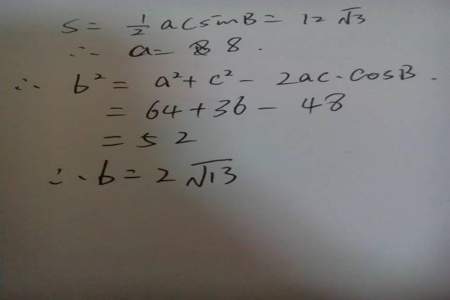 S = 1/2 acsinB = 12√3
∴ a = 8 8.
∴ b² = a² + c² - 2ac·cosB.
= 64 + 36 - 48
= 52
∴ b = 2√13